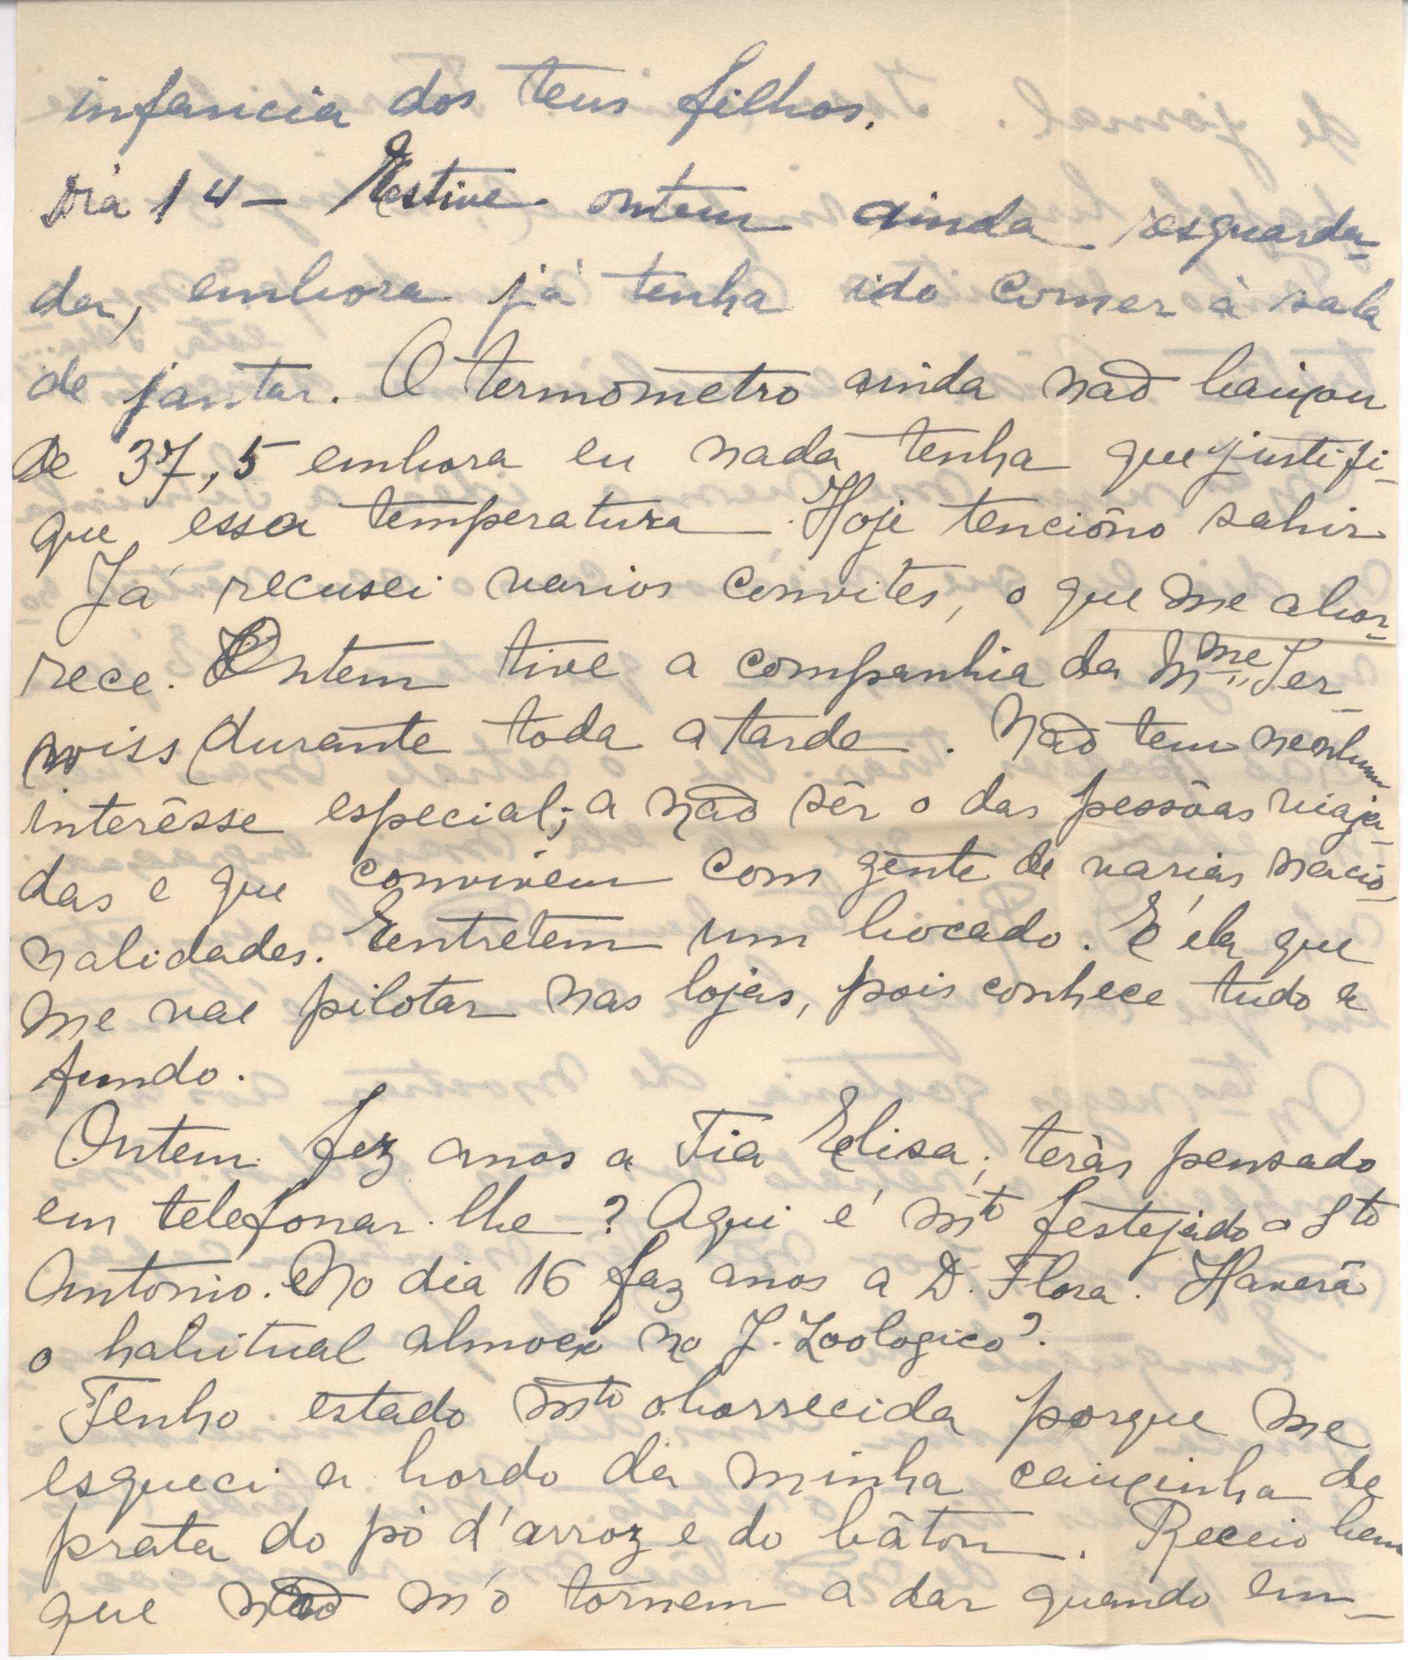 infancia dos teus filhos.
Dia 14 - Estive ontem ainda resguarda-
da, embora já tenha ido comer à sala
de jantar. O termometro ainda não baixou
de 37,5 embora eu nada tenha que justifi-
que essa temperatura. Hoje tenciôno sahir
Já recusei varios convites, o que me abor-
rece. Ontem tive a companhia da Mme
durante toda a tarde. Não tem nenhum
interêsse especial; a não sêr o das pessôas viaja-
das e que convivem com gente de varias nacio-
nalidades. Entretem um bocado. É éla que
me vae pilotar nas lojas, pois conhece tudo a
fundo.
Ontem fez anos a Tia Elisa; teràs pensado
em telefonar-lhe? Aqui é mto festejado o Sto
Antonio. No dia 16 faz anos a D. Flora. Haverá
o habitual almoço no J. Zoologico?
Tenho estado mto aborrecida porque me
esqueci a bordo da minha caixinha de
prata do pó d'arroz e do bâton. Receio bem
que não m'o tornem a dar quando em-